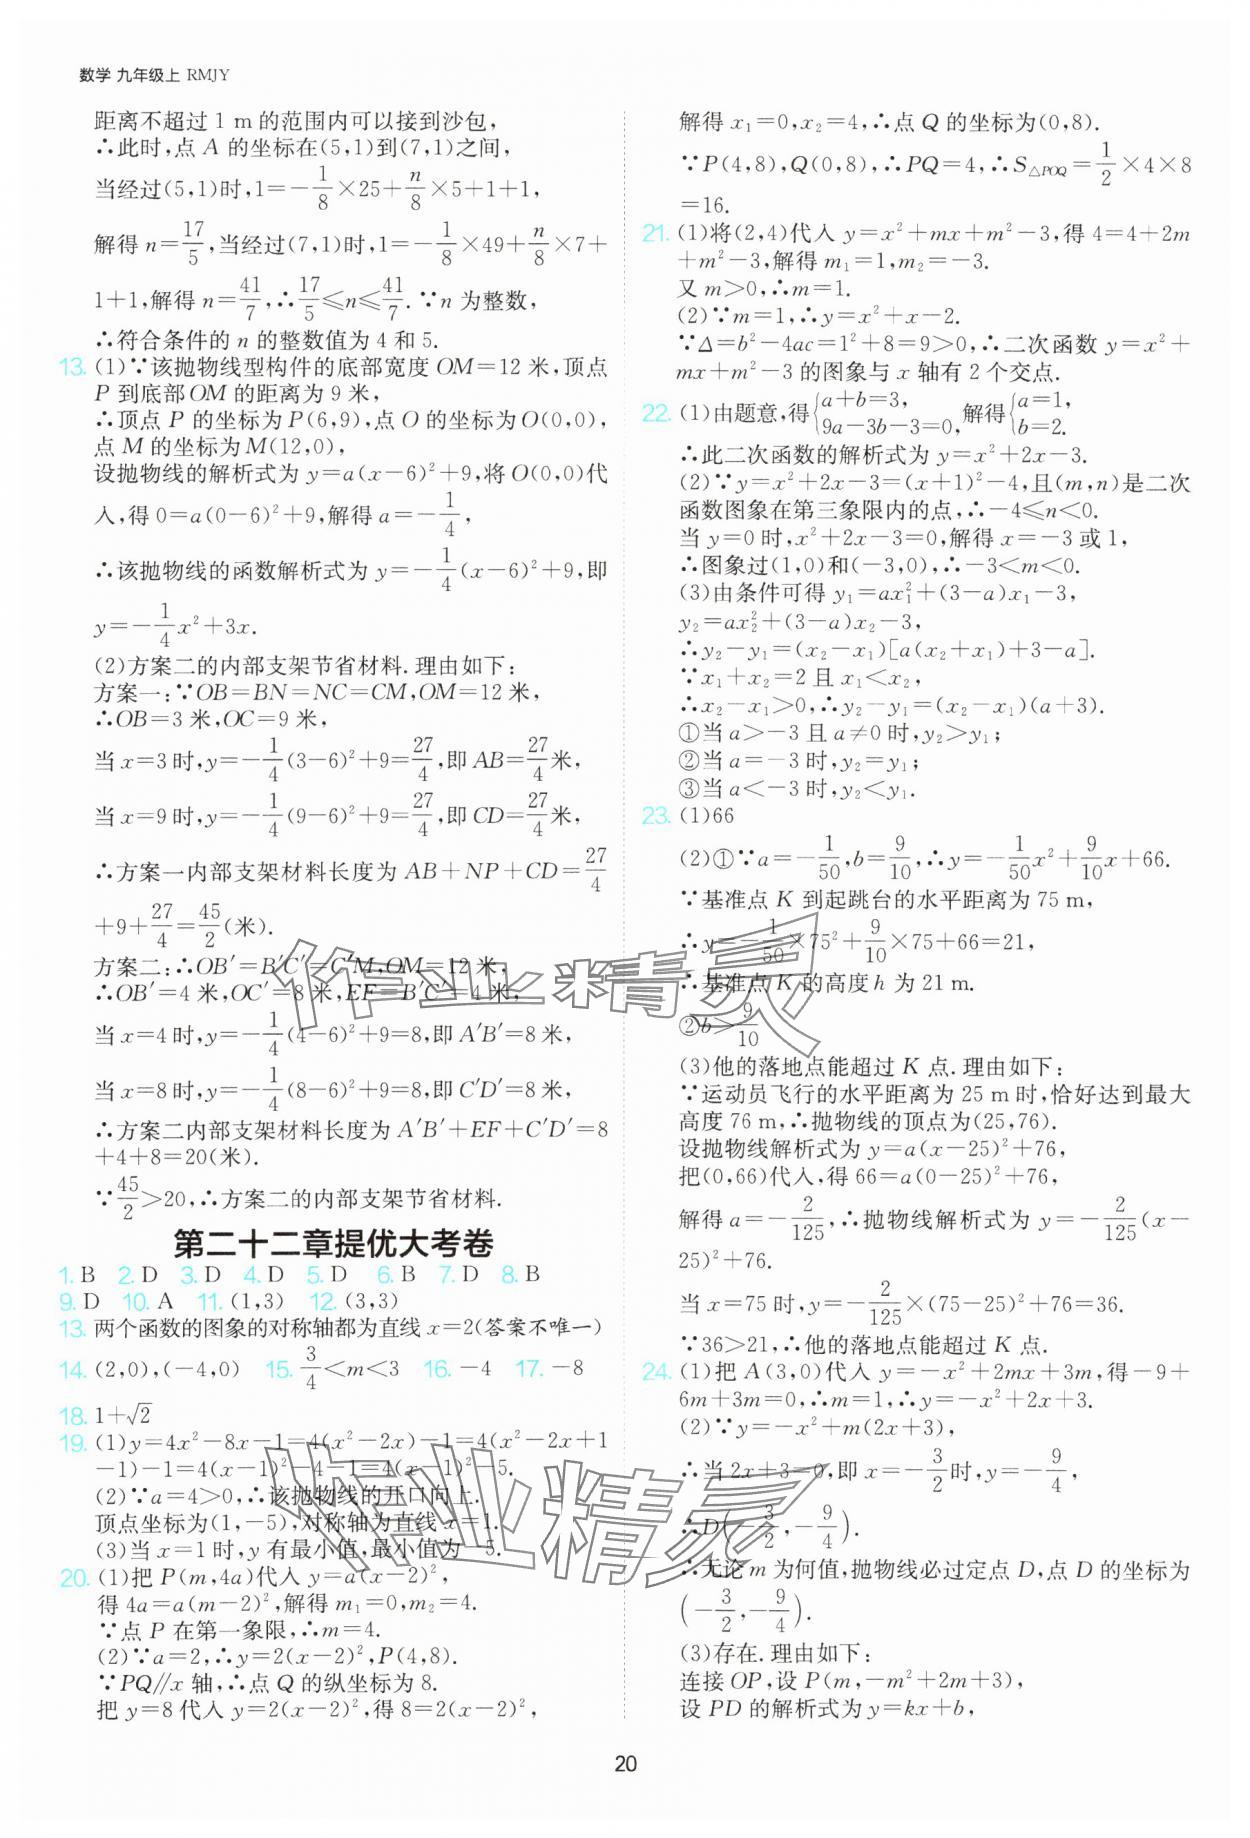 数学 九年级上 RMJY
距离不超过 1 m 的范围内可以接到沙包,
∴此时,点 A 的坐标在(5,1)到(7,1)之间,
当经过(5,1)时,1=-1/8×25+n/8×5+1+1,
解得 n=17/5,当经过(7,1)时,1=-1/8×49+n/8×7+
1+1,解得 n=41/7,∴17/5≤n≤41/7.∵n 为整数,
∴符合条件的 n 的整数值为 4 和 5.
13. (1)∵该抛物线型构件的底部宽度 OM=12 米,顶点
P 到底部 OM 的距离为 9 米,
∴顶点 P 的坐标为 P(6,9),点 O 的坐标为 O(0,0),
点 M 的坐标为 M(12,0),
设抛物线的解析式为 y=a(x-6)²+9,将 O(0,0)代
入,得 0=a(0-6)²+9,解得 a=-1/4,
∴该抛物线的函数解析式为 y=-1/4(x-6)²+9,即
y=-1/4x²+3x.
(2)方案二的内部支架节省材料.理由如下:
方案一:∵OB=BN=NC=CM,OM=12 米,
∴OB=3 米,OC=9 米,
当 x=3 时,y=-1/4(3-6)²+9=27/4,即 AB=27/4米,
当 x=9 时,y=-1/4(9-6)²+9=27/4,即 CD=27/4米,
∴方案一内部支架材料长度为 AB+NP+CD=27/4
+9+27/4=45/2(米).
方案二:∴OB′=B′C′=C′M,OM=12 米,
∴OB′=4 米,OC′=8 米,EF=B′C′=4 米,
当 x=4 时,y=-1/4(4-6)²+9=8,即 A′B′=8 米,
当 x=8 时,y=-1/4(8-6)²+9=8,即 C′D′=8 米,
∴方案二内部支架材料长度为 A′B′+EF+C′D′=8
+4+8=20(米).
∵45/2>20,∴方案二的内部支架节省材料.
第二十二章提优大考卷
1. B 2. D 3. D 4. D 5. D 6. B 7. D 8. B
9. D 10. A 11. (1,3) 12. (3,3)
13. 两个函数的图象的对称轴都为直线 x=2(答案不唯一)
14. (2,0),(-4,0) 15. 3/4<m<3 16. -4 17. -8
18. 1+√2
19. (1)y=4x²-8x-1=4(x²-2x)-1=4(x²-2x+1
-1)-1=4(x-1)²-4-1=4(x-1)²-5.
(2)∵a=4>0,∴该抛物线的开口向上.
顶点坐标为(1,-5),对称轴为直线 x=1.
(3)当 x=1 时,y 有最小值,最小值为-5.
20. (1)把 P(m,4a)代入 y=a(x-2)²,
得 4a=a(m-2)²,解得 m₁=0,m₂=4.
∵点 P 在第一象限,∴m=4.
(2)∵a=2,∴y=2(x-2)²,P(4,8).
∵PQ∥x 轴,∴点 Q 的纵坐标为 8.
把 y=8 代入 y=2(x-2)²,得 8=2(x-2)²,
解得 x₁=0,x₂=4,∴点 Q 的坐标为(0,8).
∵P(4,8),Q(0,8),∴PQ=4,∴S△POQ=1/2×4×8
=16.
21. (1)将(2,4)代入 y=x²+mx+m²-3,得 4=4+2m
+m²-3,解得 m₁=1,m₂=-3.
又 m>0,∴m=1.
(2)∵m=1,∴y=x²+x-2.
∵Δ=b²-4ac=1²+8=9>0,∴二次函数 y=x²+
mx+m²-3 的图象与 x 轴有 2 个交点.
22. (1)由题意,得{a+b=3, 9a-3b-3=0, 解得{a=1, b=2.
∴此二次函数的解析式为 y=x²+2x-3.
(2)∵y=x²+2x-3=(x+1)²-4,且(m,n)是二次
函数图象在第三象限内的点,∴-4≤n<0.
当 y=0 时,x²+2x-3=0,解得 x=-3 或 1,
∴图象过(1,0)和(-3,0),∴-3<m<0.
(3)由条件可得 y₁=ax₁²+(3-a)x₁-3,
y₂=ax₂²+(3-a)x₂-3,
∴y₂-y₁=(x₂-x₁)[a(x₂+x₁)+3-a].
∵x₁+x₂=2 且 x₁<x₂,
∴x₂-x₁>0,∴y₂-y₁=(x₂-x₁)(a+3).
①当 a>-3 且 a≠0 时,y₂>y₁;
②当 a=-3 时,y₂=y₁;
③当 a<-3 时,y₂<y₁.
23. (1)66
(2)①∵a=-1/50,b=9/10,∴y=-1/50x²+9/10x+66.
∵基准点 K 到起跳台的水平距离为 75 m,
∴y=-1/50×75²+9/10×75+66=21,
∴基准点 K 的高度 h 为 21 m.
②b>9/10
(3)他的落地点能超过 K 点.理由如下:
∵运动员飞行的水平距离为 25 m 时,恰好达到最大
高度 76 m,∴抛物线的顶点为(25,76).
设抛物线解析式为 y=a(x-25)²+76,
把(0,66)代入,得 66=a(0-25)²+76,
解得 a=-2/125,∴抛物线解析式为 y=-2/125(x-
25)²+76.
当 x=75 时,y=-2/125×(75-25)²+76=36.
∵36>21,∴他的落地点能超过 K 点.
24. (1)把 A(3,0)代入 y=-x²+2mx+3m,得-9+
6m+3m=0,∴m=1,∴y=-x²+2x+3.
(2)∵y=-x²+m(2x+3),
∴当 2x+3=0,即 x=-3/2时,y=-9/4,
∴D(-3/2,-9/4).
∴无论 m 为何值,抛物线必过定点 D,点 D 的坐标为
(-3/2,-9/4).
(3)存在.理由如下:
连接 OP,设 P(m,-m²+2m+3),
设 PD 的解析式为 y=kx+b,
20
作业精灵
作业精灵